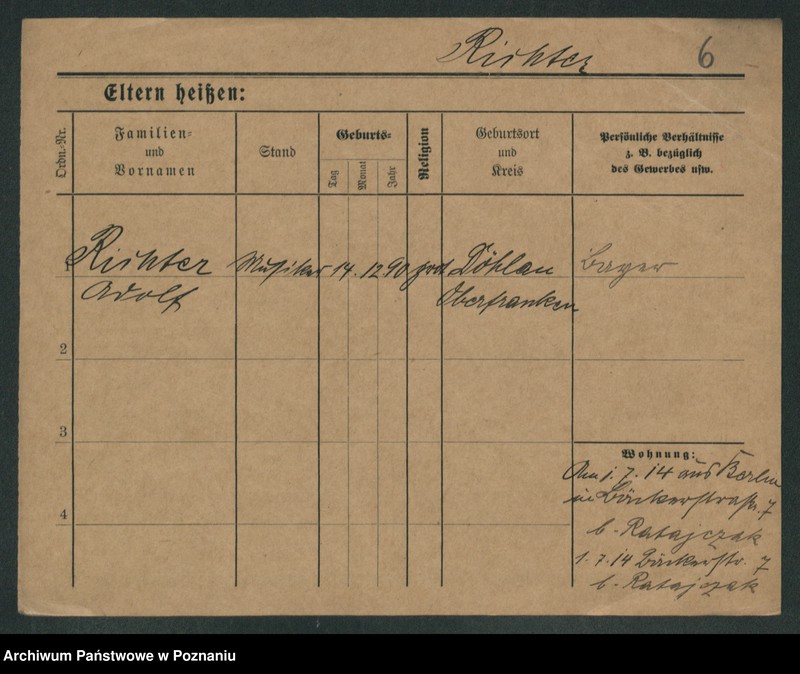 Richter 6
Eltern heißen:
Ordn.-Nr.
Familien=
und
Vornamen
Stand
Geburts=
Tag
Monat
Jahr
Religion
Geburtsort
und
Kreis
Persönliche Verhältnisse
z. B. bezüglich
des Gewerbes usw.
1 Richter Musiker 14. 12 90 Döhlau Bayer
Adolf Oberfranken
2
3
4
Wohnung:
Am 1. 7. 14 aus Berlin
in Bäckerstraße 7
b. Ratajczak
1. 7. 14 Bäckerstr. 7
b. Ratajczak
Archiwum Państwowe w Poznaniu